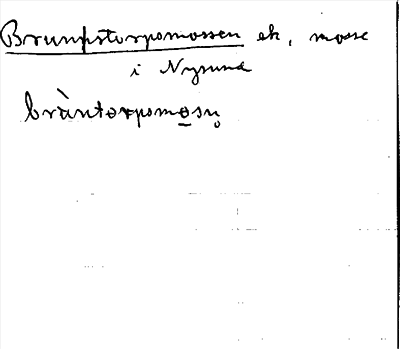 Brunpstorpomossen ek. mosse
i Nysund
bràntorpomo̲sn̥